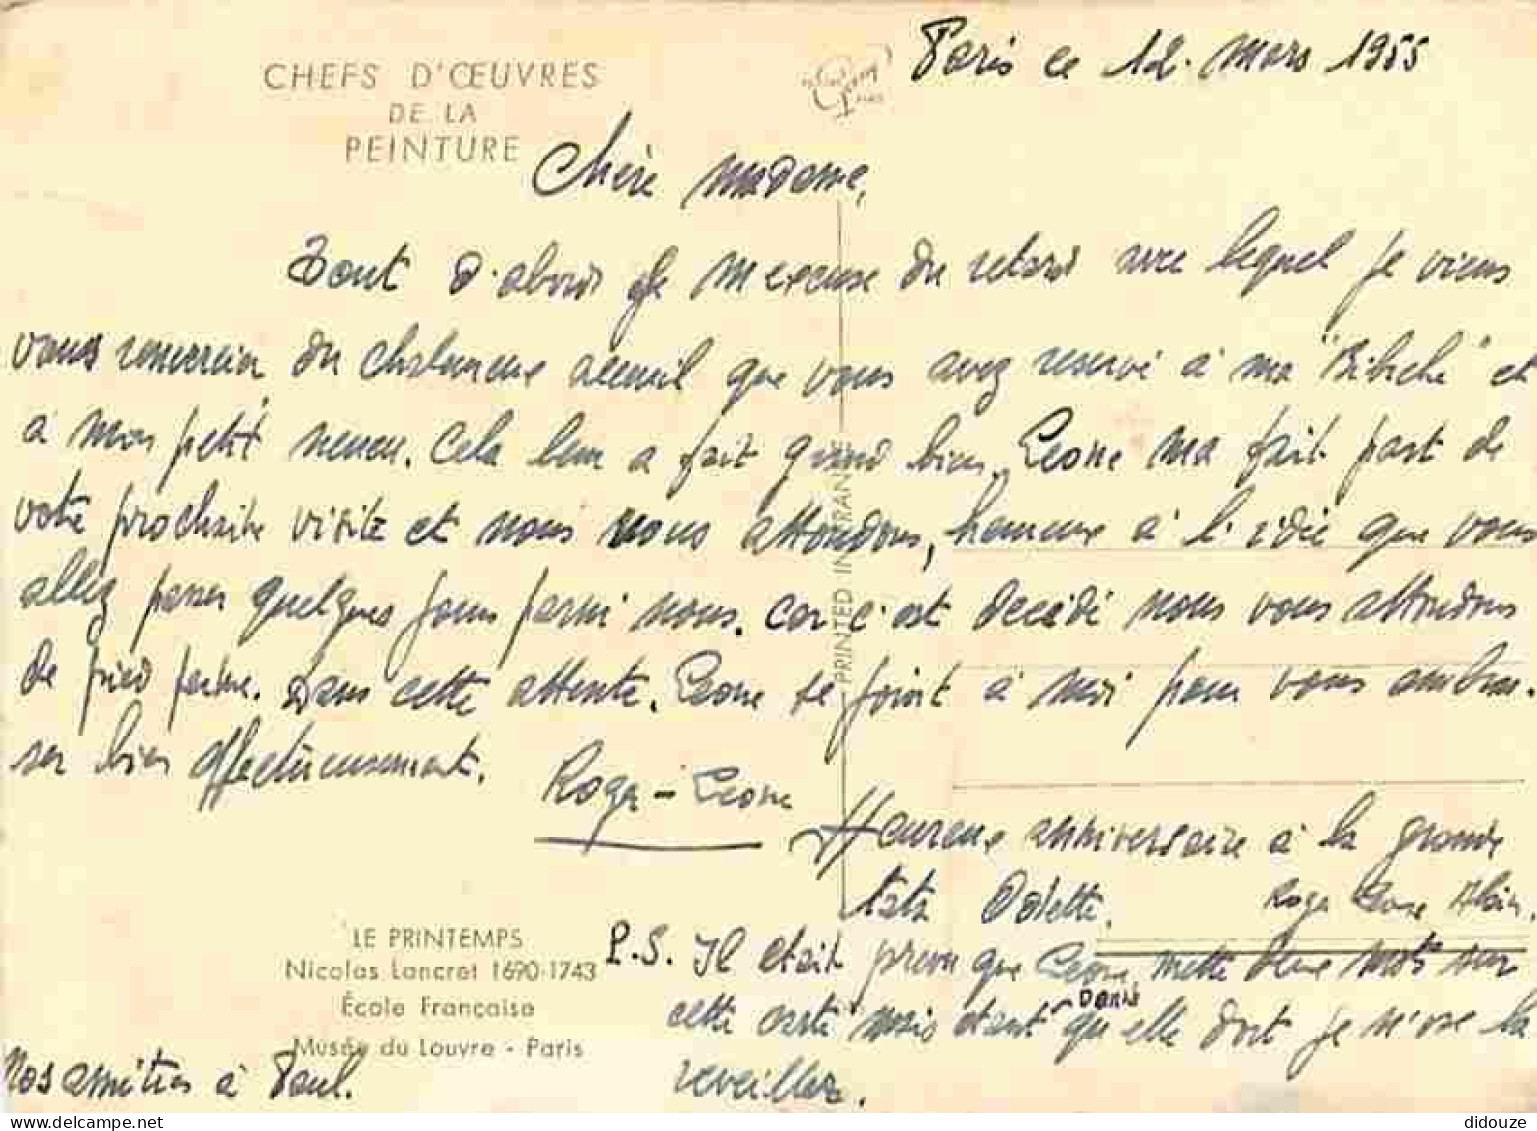 CHEFS D'ŒUVRES
DE LA
PEINTURE
Paris ce 12. mars 1955
Chère madame,
Tout d'abord je m'excuse du retard avec lequel je viens
vous remercier du chaleureux accueil que vous avez reservé à ma "Bibiche" et
à mon petit neveu. Cela leur a fait grand bien. Leone ma fait part de
votre prochaine visite et nous vous attendons, heureux à l'idée que vous
allez passer quelques jours parmi nous. Car c'est decidé nous vous attendons
de pied ferme. Dans cette attente. Leone se joint à moi pour vous embras-
ser bien affectueusement.
Roger - Leone
PRINTED IN FRANCE
Heureux anniversaire à la grande
tata Odette.
Roger Leone Alain.
LE PRINTEMPS
Nicolas Lancret 1690-1743
École Française
Musée du Louvre - Paris
P.S. Il etait prevu que Leone mette deux mots sur
cette carte mais etant donné qu'elle dort je n'ose la
reveiller.
Nos amitiés à Paul.
Editions Paris
didouze